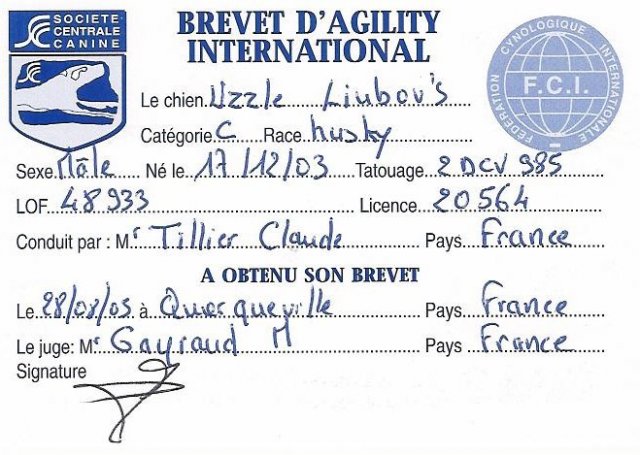 SOCIETE
CENTRALE
CANINE
BREVET D'AGILITY
INTERNATIONAL
FÉDÉRATION CYNOLOGIQUE INTERNATIONALE
F.C.I.
Le chien Uzzle Liubov's
Catégorie C Race husky
Sexe Mâle Né le 17/12/03 Tatouage 2 DCV 985
LOF 48933 Licence 20564
Conduit par : Mr Tillier Claude Pays France
A OBTENU SON BREVET
Le 28/08/05 à Querqueville Pays France
Le juge: Mr Gayraud M Pays France
Signature